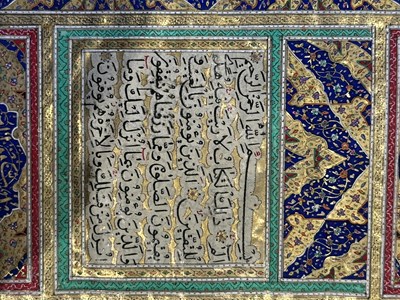 بسم الله الرحمن الرحيم
الم ذلك الكتاب لا ريب فيه هدى
للمتقين الذين يؤمنون بالغيب و
يقيمون الصلوة ومما رزقناهم ينفقون
والذين يؤمنون بما انزل اليك وما
انزل من قبلك وبالاخرة هم يوقنون